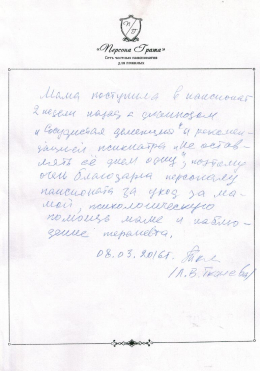 «Персона Грата»
Сеть частных пансионатов
для пожилых
Мама поступила в пансионат
2 недели назад с диагнозом
"Сосудистая деменция" и рекомен-
дацией психиатра "не остав-
лять её дома одну", поэтому
очень благодарна персоналу
пансионата за уход за ма-
мой, психологическую
помощь маме и наблю-
дение терапевта.
08.03.2016г.